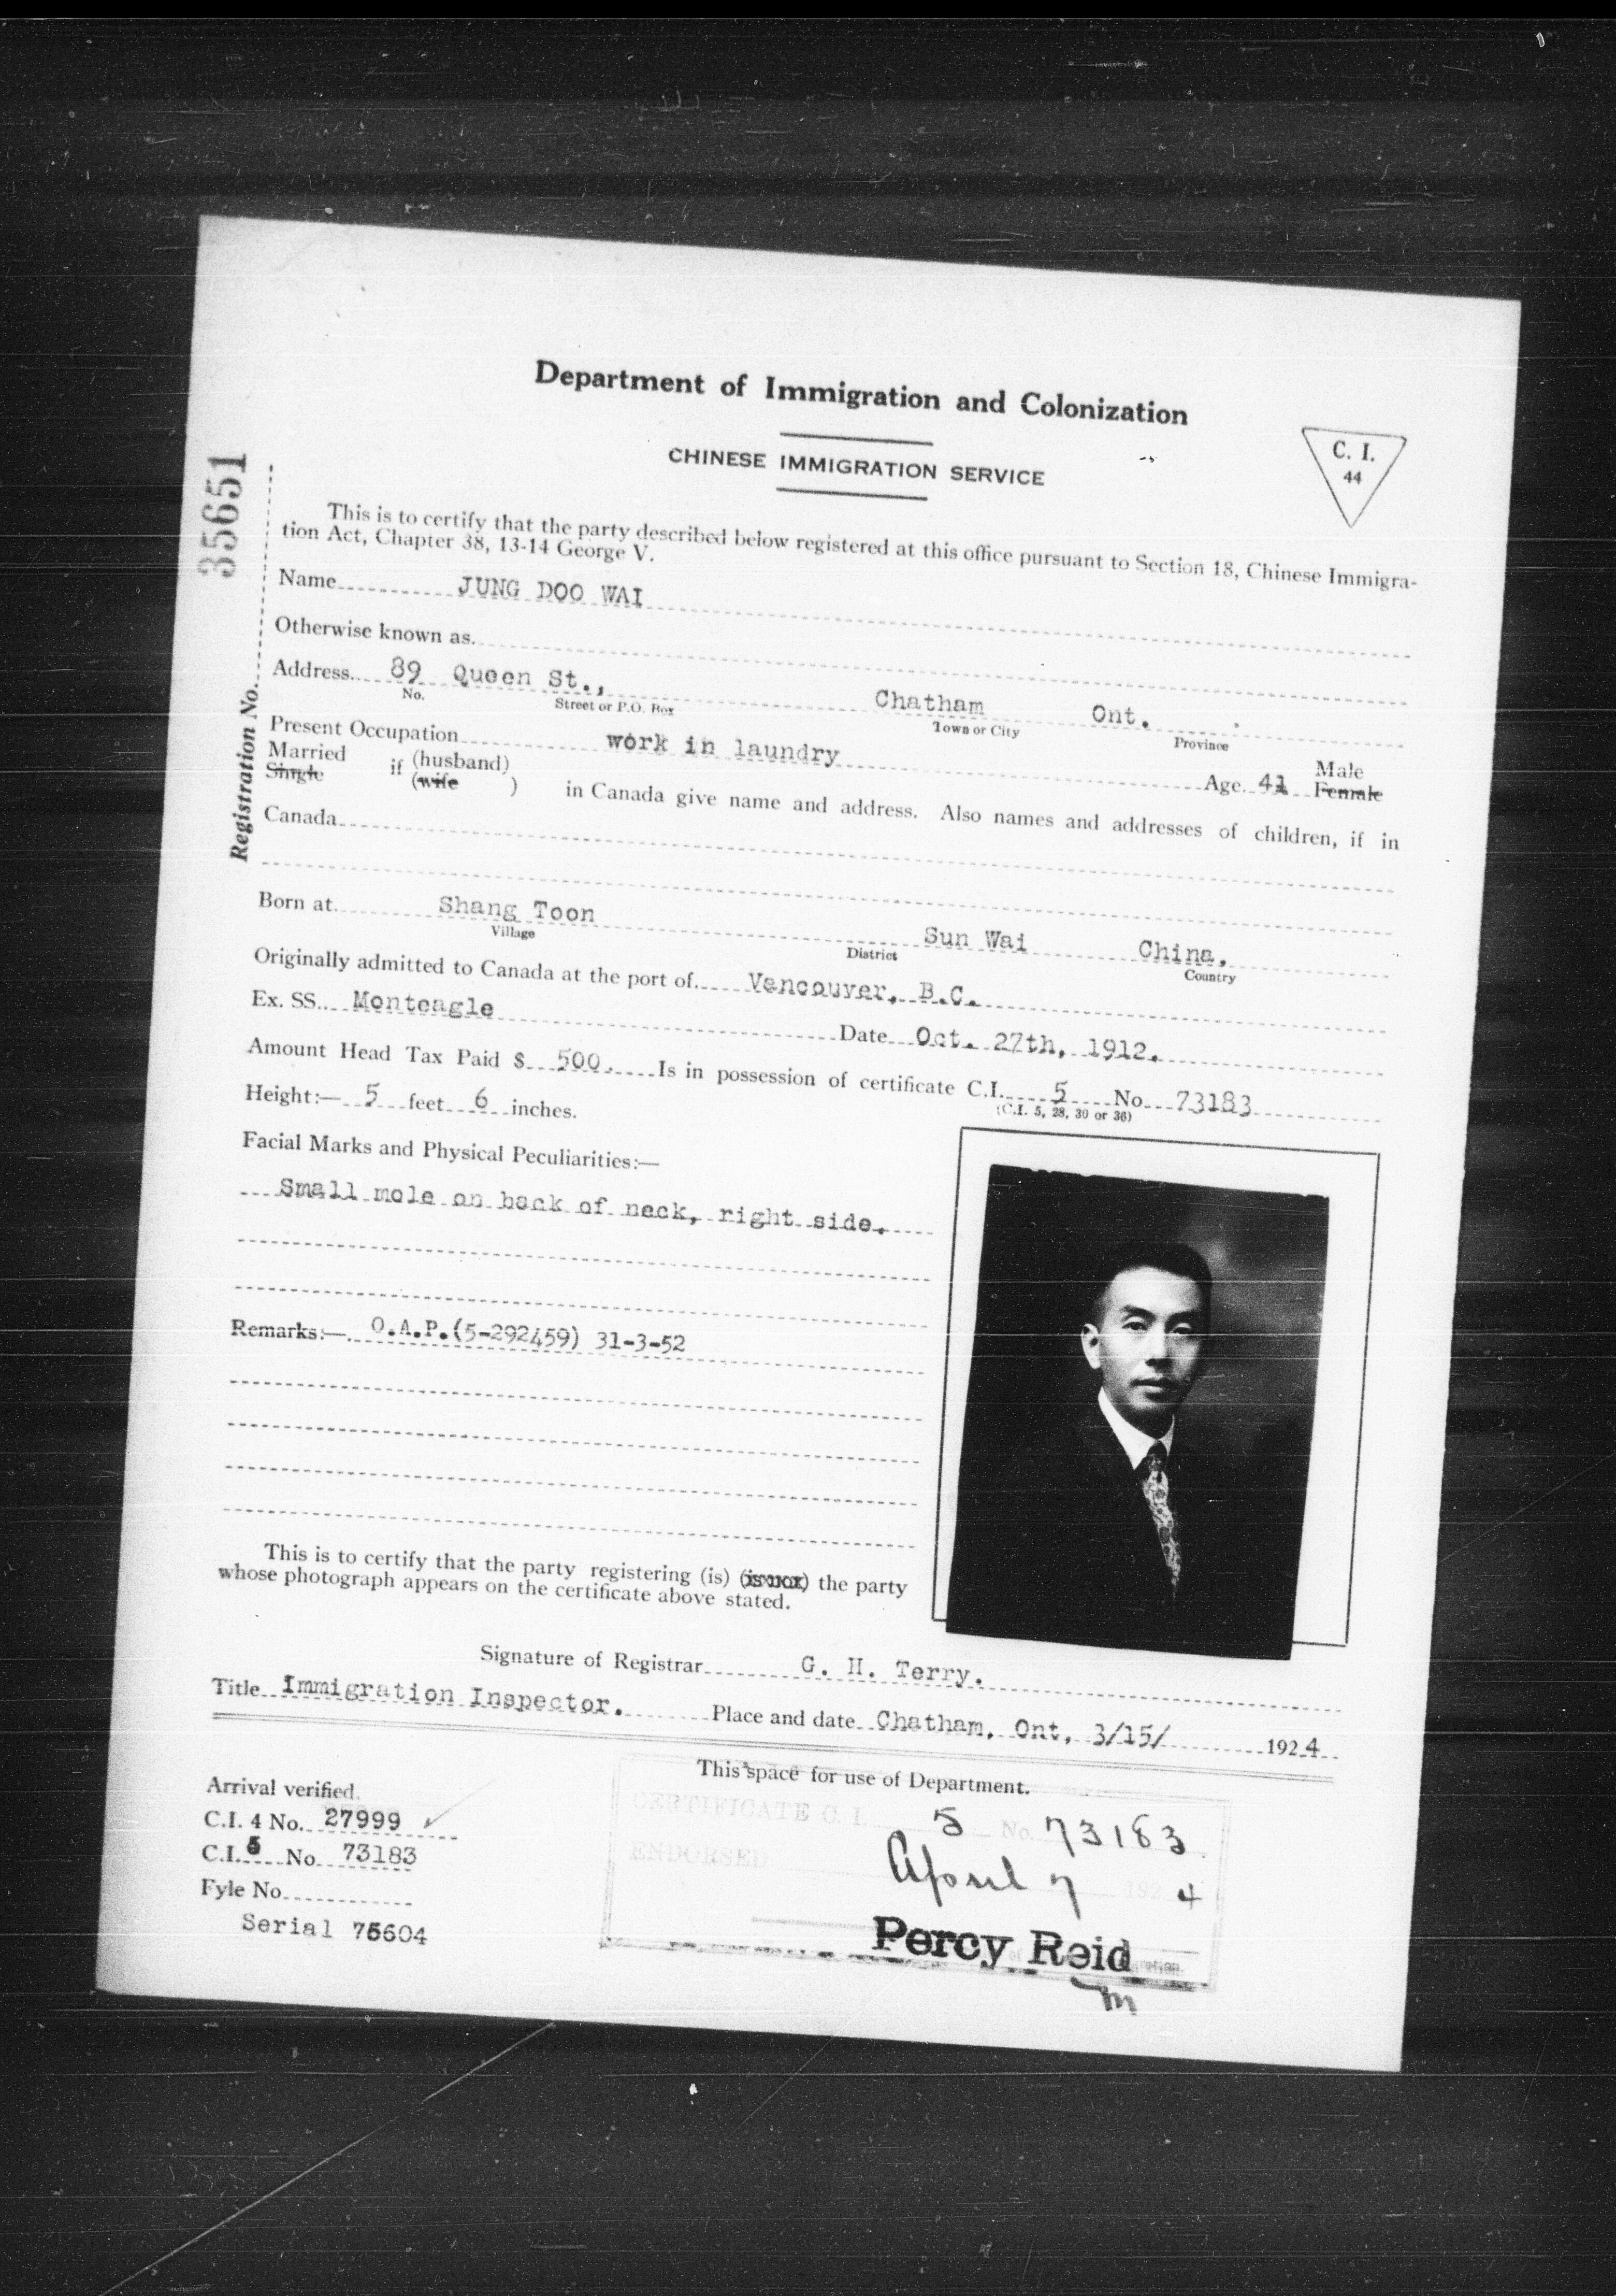 Department of Immigration and Colonization
CHINESE IMMIGRATION SERVICE
C. I.
44
35651
Registration No.
This is to certify that the party described below registered at this office pursuant to Section 18, Chinese Immigra-
tion Act, Chapter 38, 13-14 George V.
Name JUNG DOO WAI
Otherwise known as
Address 89 Queen St., Chatham Ont.
No. Street or P.O. Box Town or City Province
Present Occupation work in laundry Age 41 Male Female
Married Single if (husband) (wife ) in Canada give name and address. Also names and addresses of children, if in
Canada
Born at Shang Toon Sun Wai China.
Village District Country
Originally admitted to Canada at the port of Vancouver, B.C.
Ex. SS. Monteagle Date Oct. 27th, 1912.
Amount Head Tax Paid $ 500. Is in possession of certificate C.I. 5 No 73183
(C.I. 5, 28, 30 or 36)
Height:— 5 feet 6 inches.
Facial Marks and Physical Peculiarities:—
Small mole on back of neck, right side.
Remarks:— O.A.P.(5-292459) 31-3-52
This is to certify that the party registering (is) (is not) the party
whose photograph appears on the certificate above stated.
Signature of Registrar G. H. Terry.
Title Immigration Inspector. Place and date Chatham, Ont, 3/15/ 1924
This space for use of Department.
Arrival verified.
C.I. 4 No. 27999
C.I. 5 No. 73183
Fyle No.
Serial 75604
CERTIFICATE C.I. 5 No. 73183
ENDORSED April 7 1924
Percy Reid
m